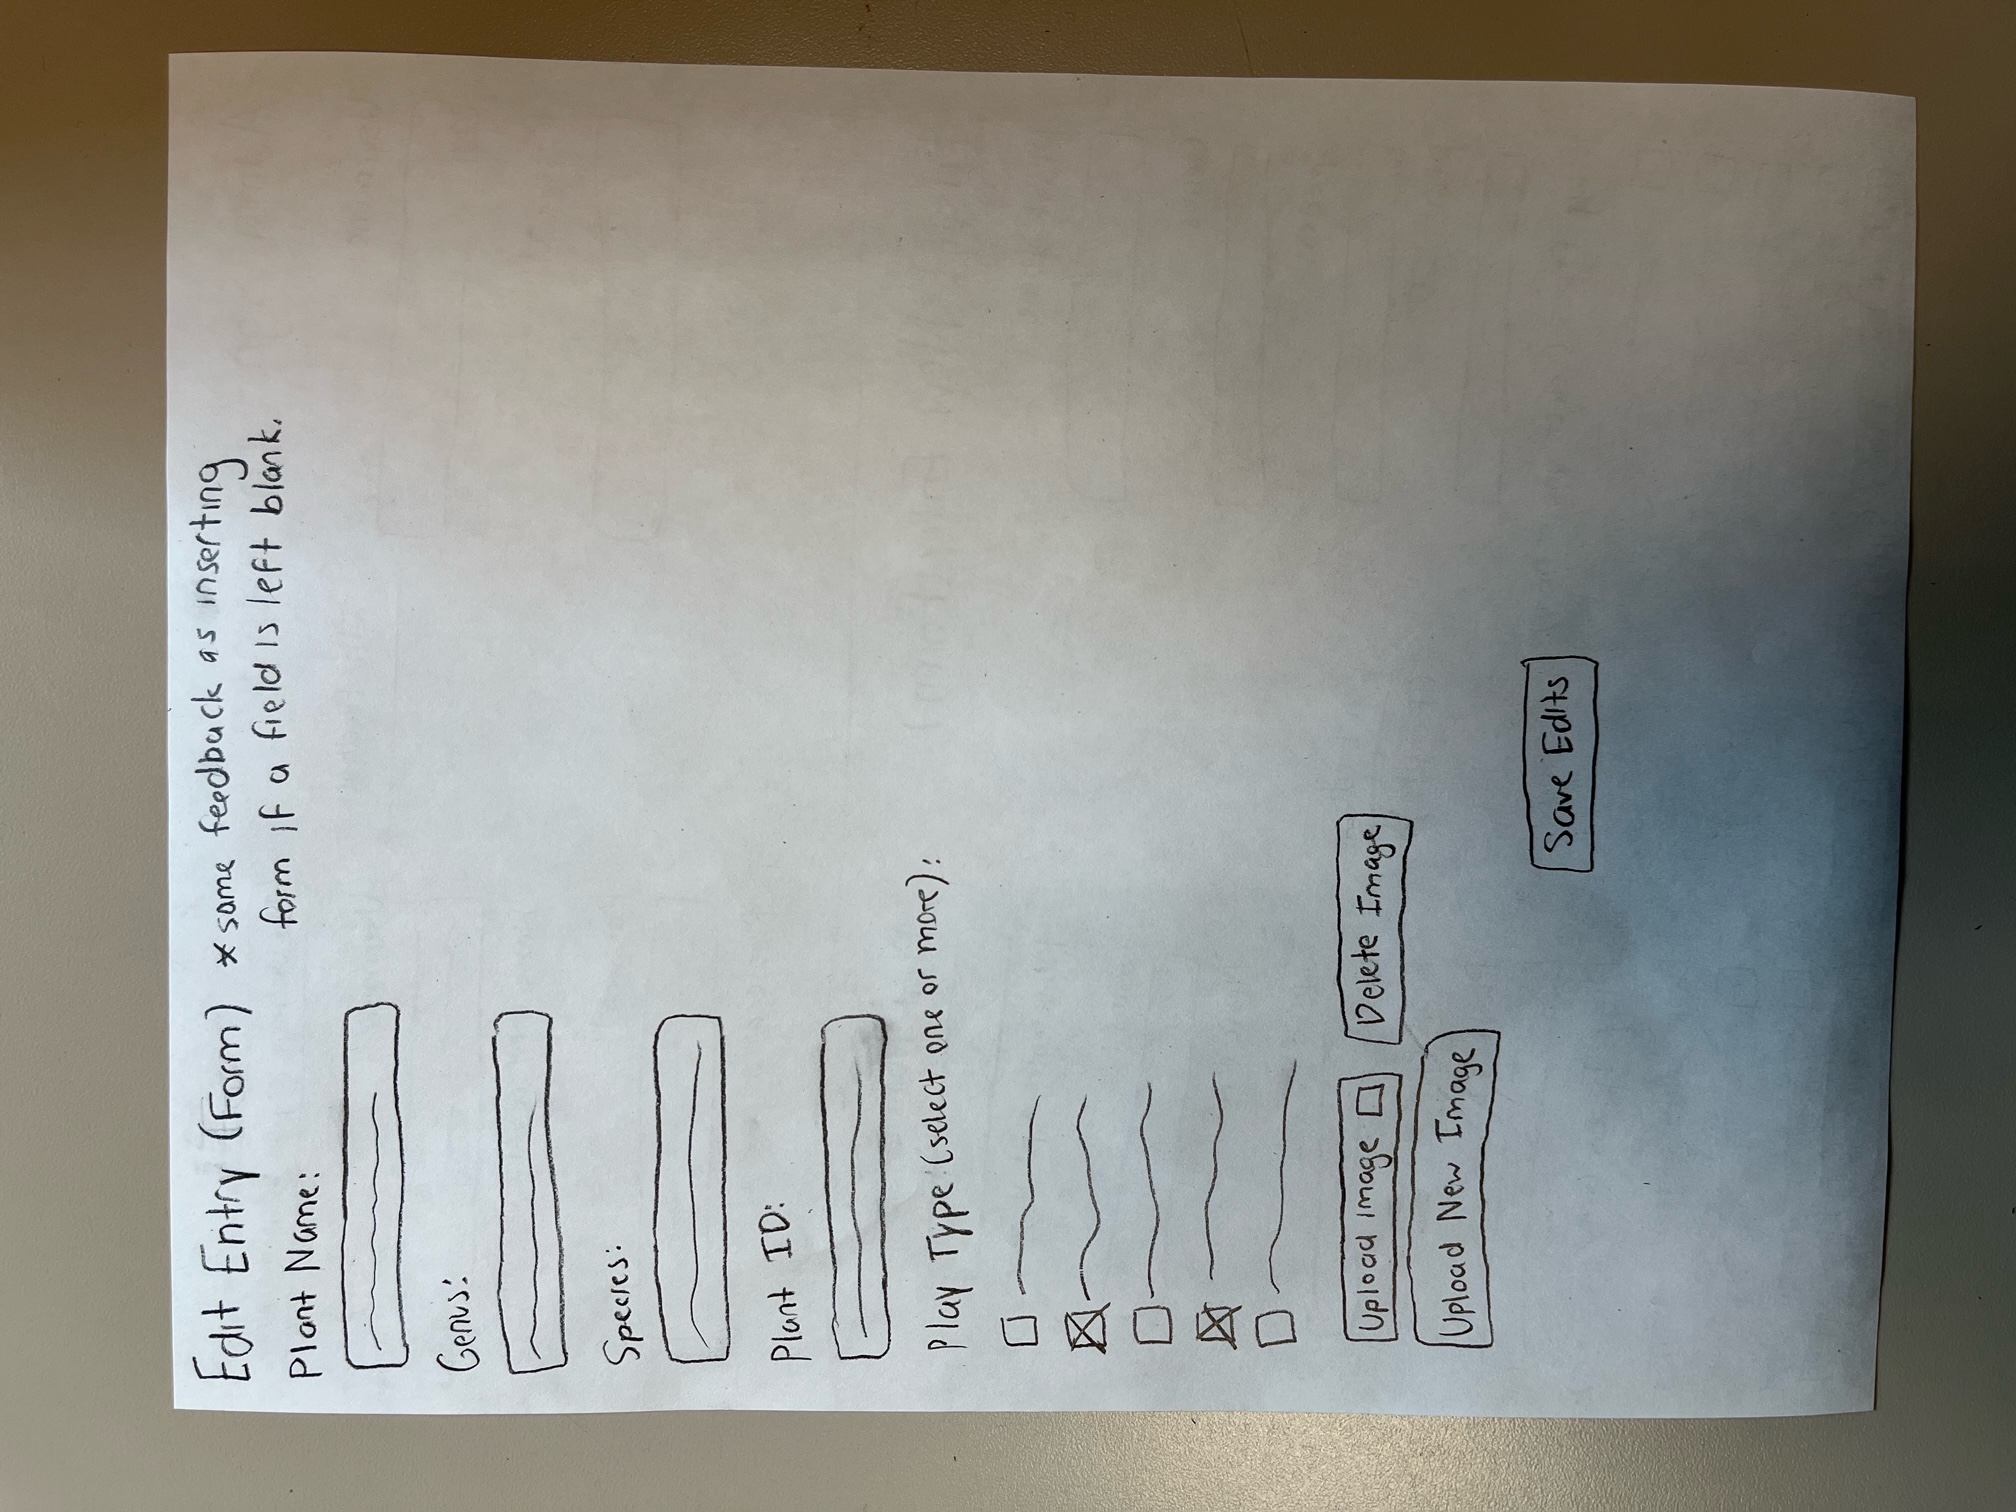 Edit Entry (Form) *same feedback as inserting
form if a field is left blank.
Plant Name:
Genus:
Species:
Plant ID:
Play Type (select one or more):
Upload Image
Delete Image
Upload New Image
Save Edits